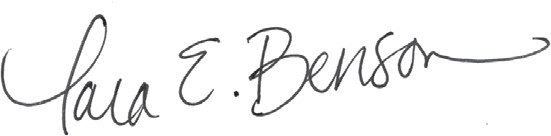 Tara E. Benson